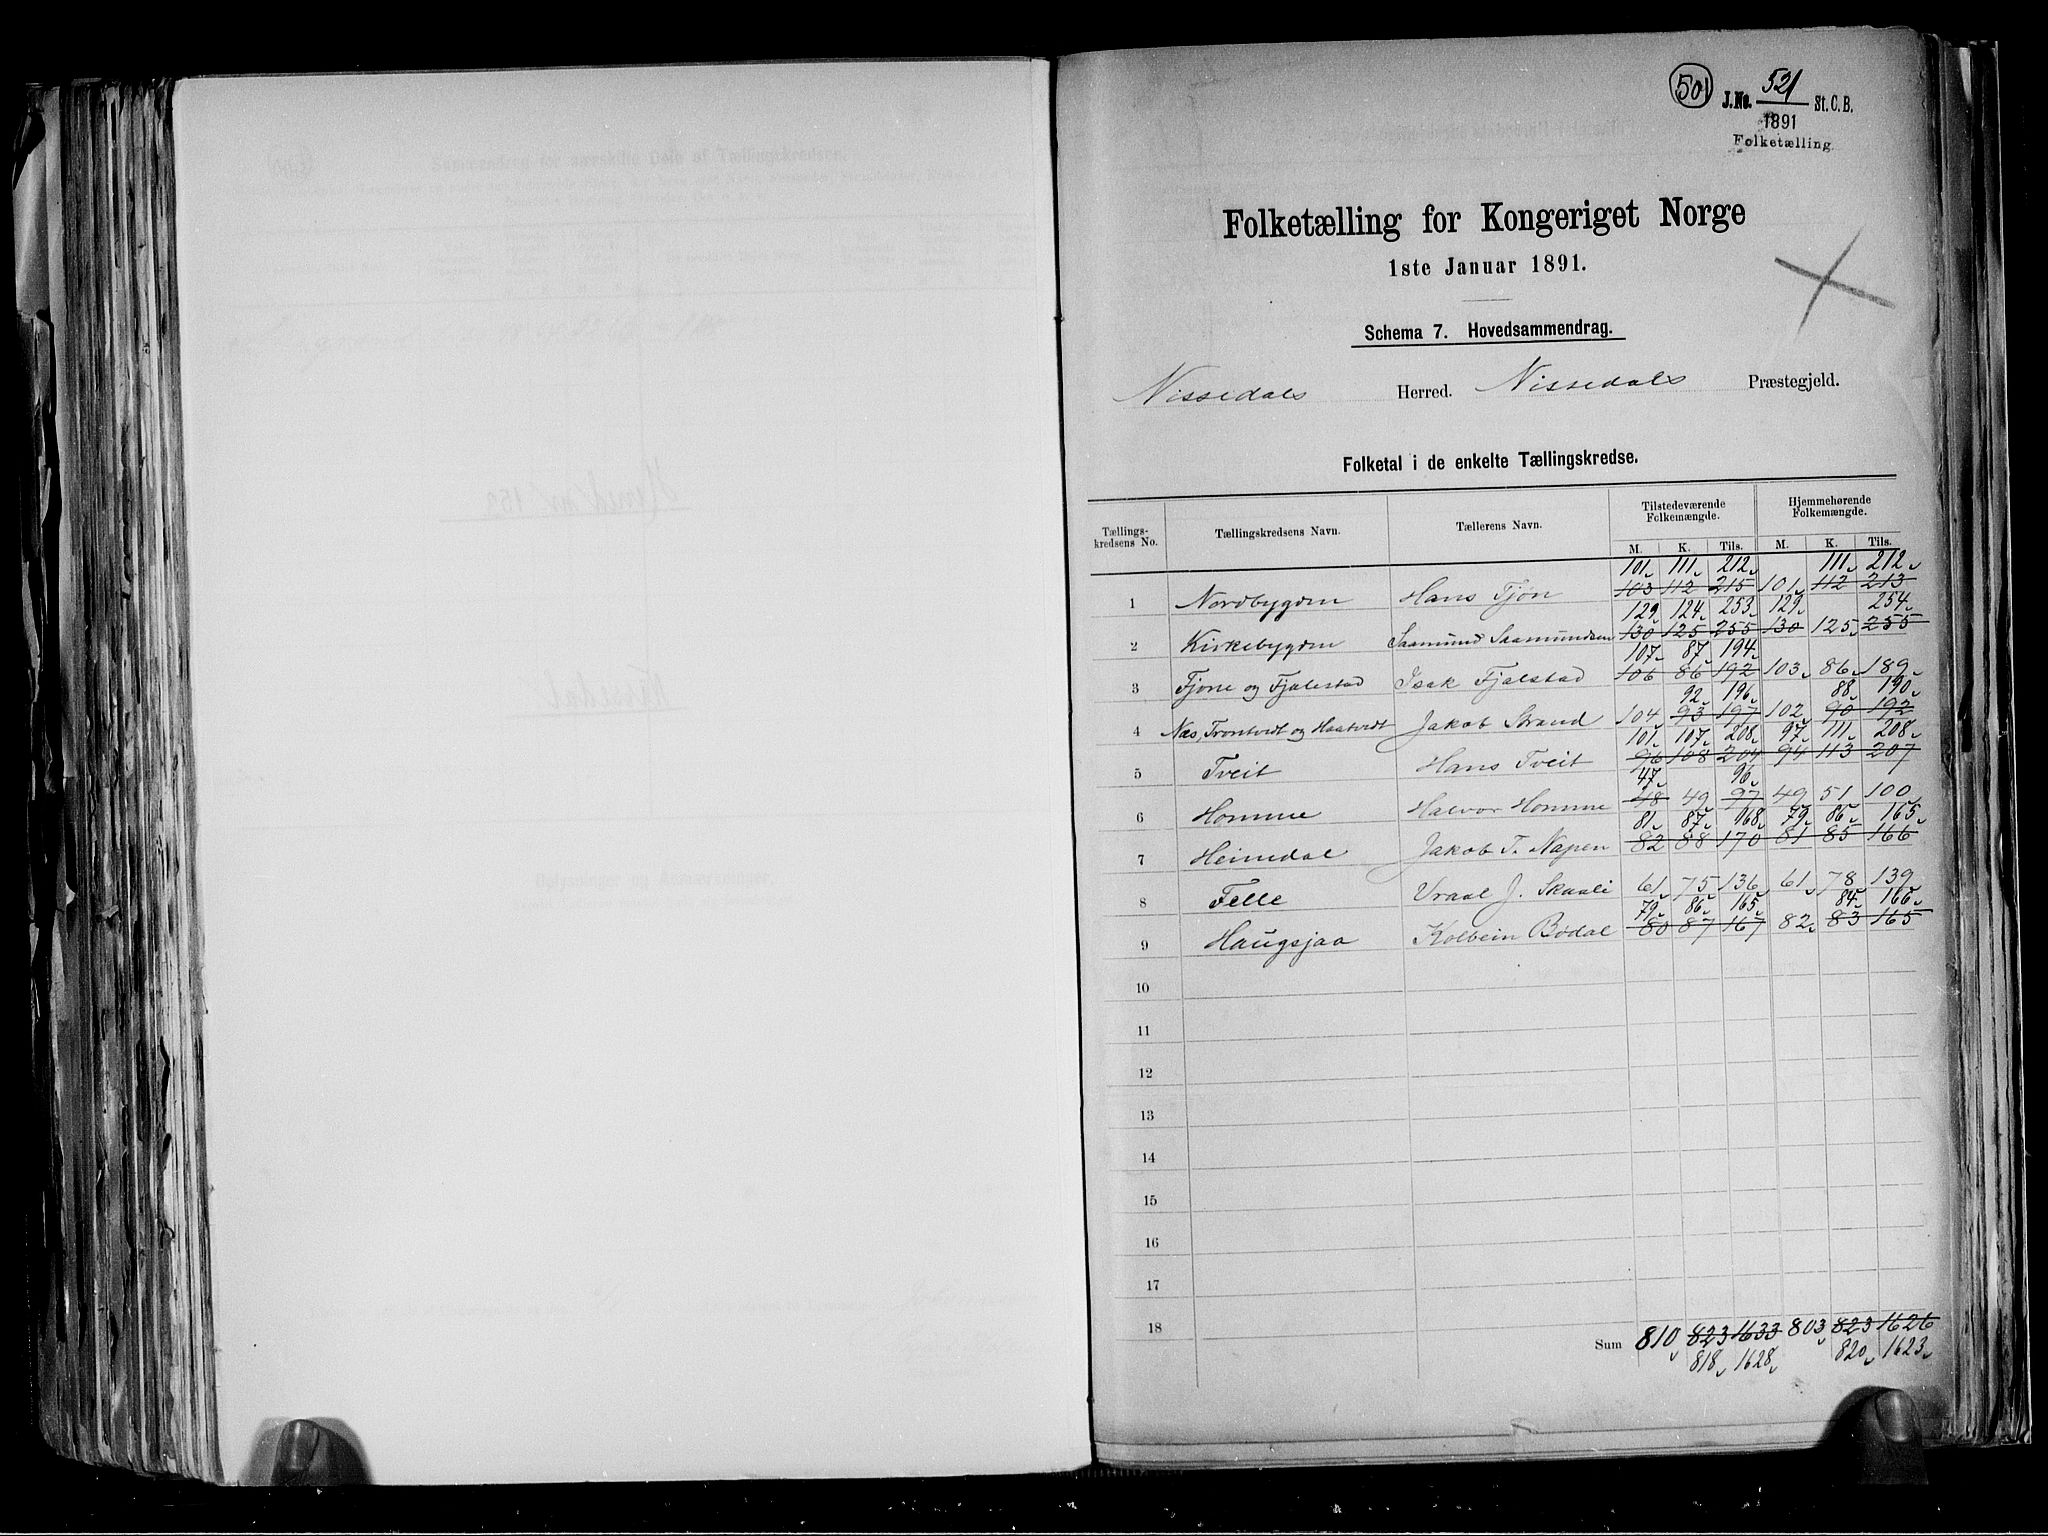 501
J.No. 521 St. C. B.
1891
Folketælling
Folketælling for Kongeriget Norge
1ste Januar 1891.
Schema 7. Hovedsammendrag.
Nissedals Herred. Nissedals Præstegjeld.
Folketal i de enkelte Tællingskredse.
Tællings-kredsens No. Tællingskredsens Navn. Tællerens Navn. Tilstedeværende Folkemængde. Hjemmehørende Folkemængde.
M. K. Tils. M. K. Tils.
101 111 212 111 212
1 Nordbygden Hans Tjøn 103 112 215 101 112 213
129 124 253 129 254
2 Kirkebygden Saamund Saamundsen 130 125 255 130 125 255
107 87 194
3 Tjone og Fjalestad Isak Fjalstad 106 86 192 103 86 189
92 196 88 190
4 Næs, Trontveit og Haatveit Jakob Strand 104 93 197 102 90 192
101 107 208 97 111 208
5 Tveit Hans Tveit 96 108 204 94 113 207
47 96
6 Homme Halvor Homme 48 49 97 49 51 100
81 87 168 79 86 165
7 Heimdal Jakob T. Napen 82 88 170 81 85 166
8 Felle Vraal J. Skaali 61 75 136 61 78 139
79 86 165 84 166
9 Haugsjaa Kolbein Bødal 80 87 167 82 83 165
10
11
12
13
14
15
16
17
18
Sum 810 823 1633 803 823 1626
818 1628 820 1623